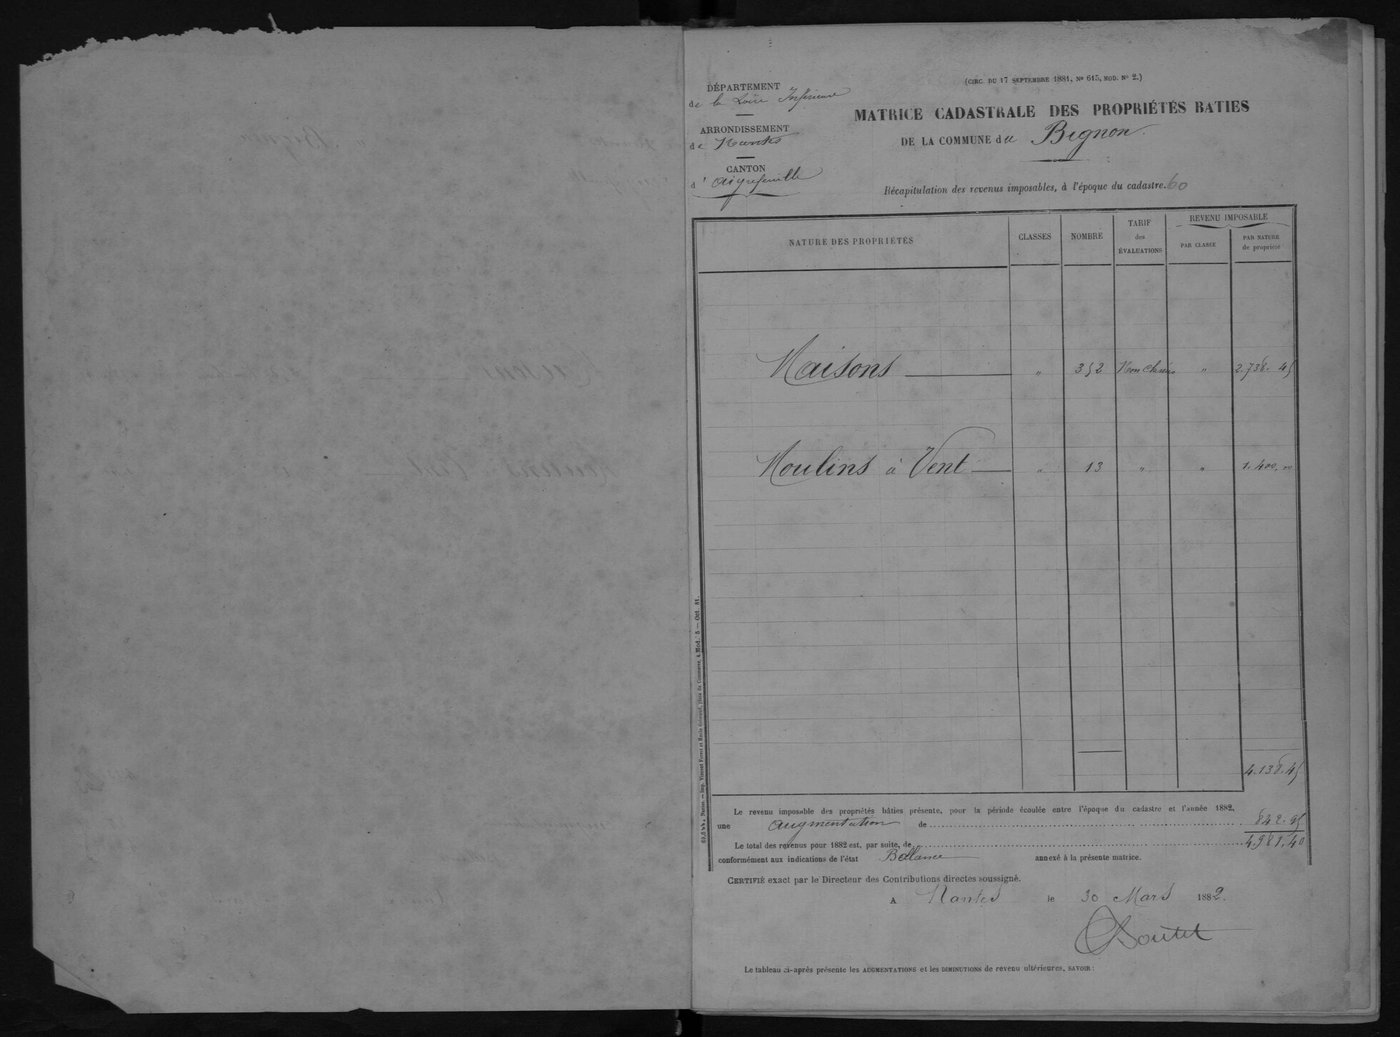 (CIRC. DU 17 SEPTEMBRE 1881, No 615, MOD. No 2.)
DÉPARTEMENT
de la Loire Inférieure
ARRONDISSEMENT
de Nantes
CANTON
d' Aigrefeuille
MATRICE CADASTRALE DES PROPRIÉTÉS BATIES
DE LA COMMUNE du Bignon
Récapitulation des revenus imposables, à l'époque du cadastre. 60
NATURE DES PROPRIÉTÉS CLASSES NOMBRE TARIF des ÉVALUATIONS REVENU IMPOSABLE
PAR CLASSE PAR NATURE de propriété
Maisons " 352 " 2.738. 45
Moulins à Vent " 13 " " 1.400. 00
4.138.45
Le revenu imposable des propriétés bâties présente, pour la période écoulée entre l'époque du cadastre et l'année 1882,
une augmentation de 842.95
Le total des revenus pour 1882 est, par suite, de 4.981.40
conformément aux indications de l'état annexé à la présente matrice.
CERTIFIÉ exact par le Directeur des Contributions directes soussigné.
A Nantes le 30 Mars 1882.
Le tableau ci-après présente les AUGMENTATIONS et les DIMINUTIONS de revenu ultérieures, SAVOIR :